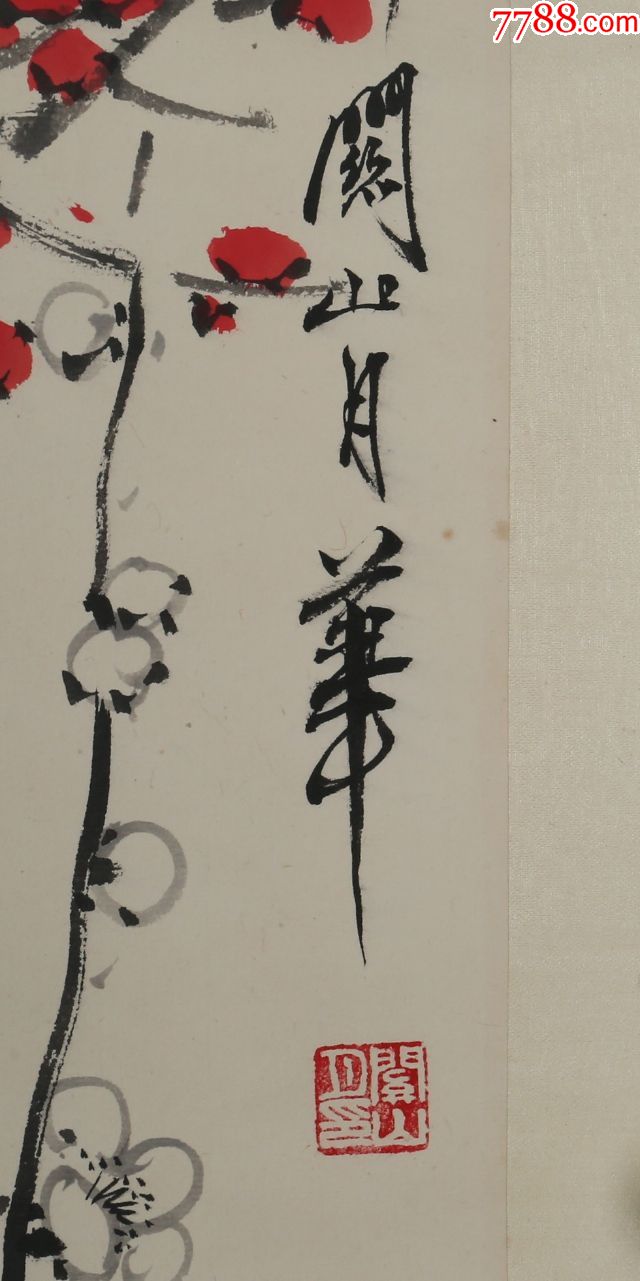 7788.com
關山月華
關山月印